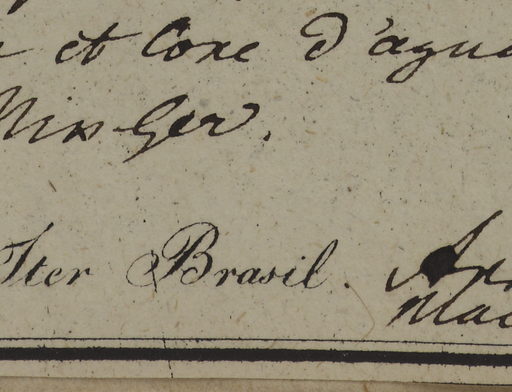 et Coxe d'agua
Min Ger.
Iter Brasil.